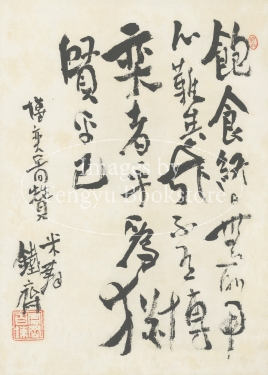 飽食終日無所用
心難矣哉不有博
奕者乎為猶
賢乎已
博奕者賛
米華
鐵齋
Images by
Tengyu Bookstore